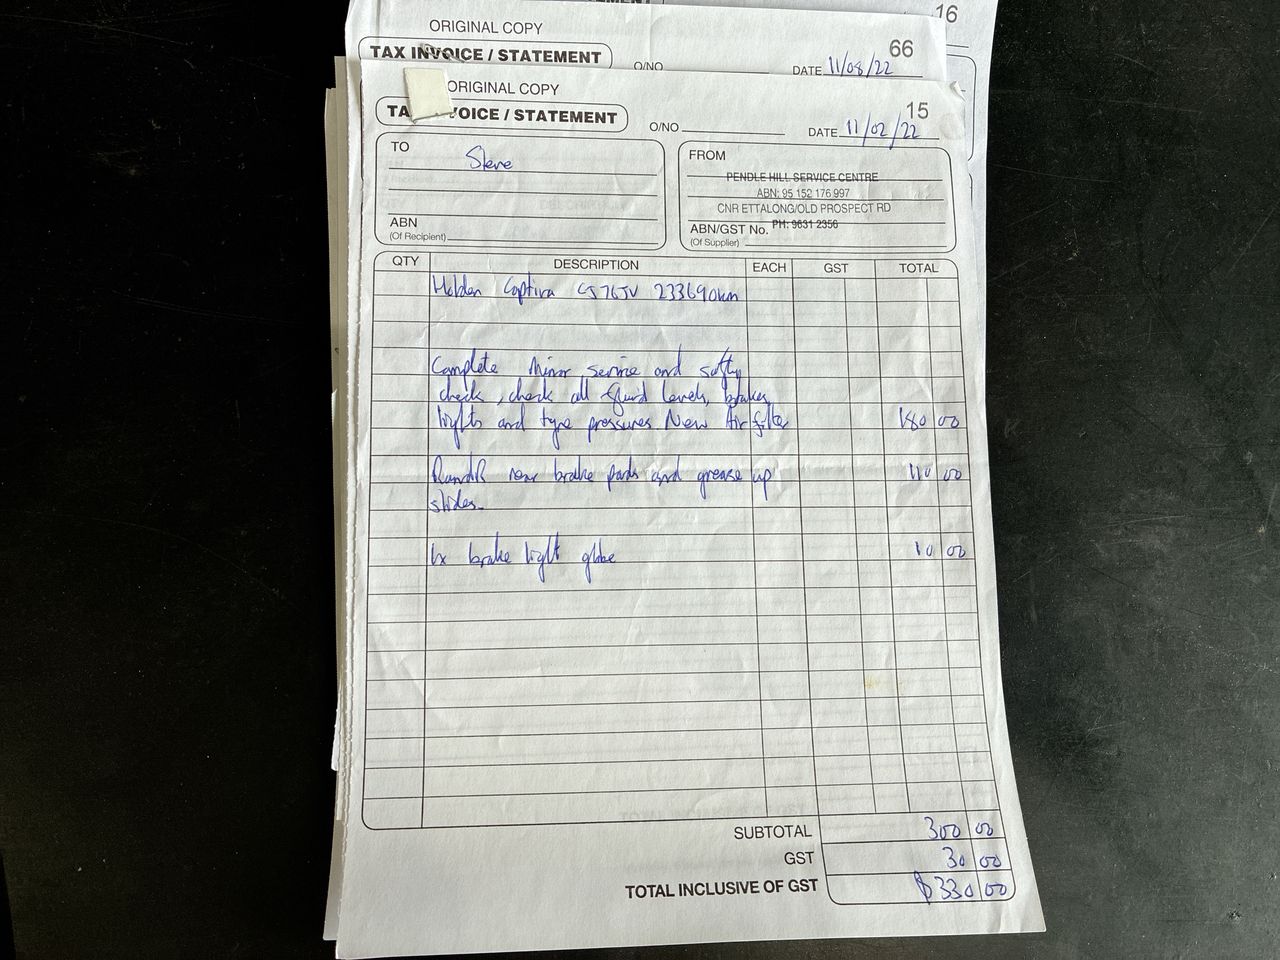 16
ORIGINAL COPY
66
TAX INVOICE / STATEMENT
O/NO
DATE 11/08/22
ORIGINAL COPY
15
TA VOICE / STATEMENT
O/NO
DATE 11/02/22
TO
Steve
ABN
(Of Recipient)
FROM
PENDLE HILL SERVICE CENTRE
ABN: 95 152 176 997
CNR ETTALONG/OLD PROSPECT RD
ABN/GST No. PH: 9631 2356
(Of Supplier)
QTY DESCRIPTION EACH GST TOTAL
Holden Captiva CJ76JV 233690km
Complete Minor service and safty
check, check all fluid levels, brakes,
lights and tyre pressures New Air filter 180 00
RandR rear brake pads and grease up 110 00
slides.
1x brake light globe 10 00
SUBTOTAL 300 00
GST 30 00
TOTAL INCLUSIVE OF GST $330 00